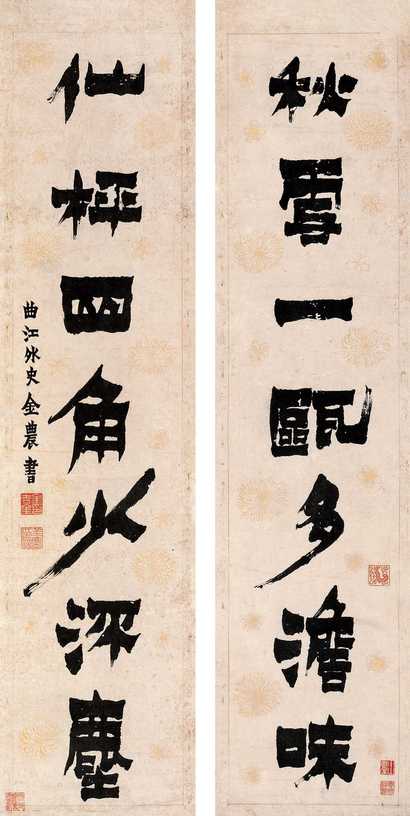 秋雪一甌多澹味
仙枰四角少塵
曲江外史金農書